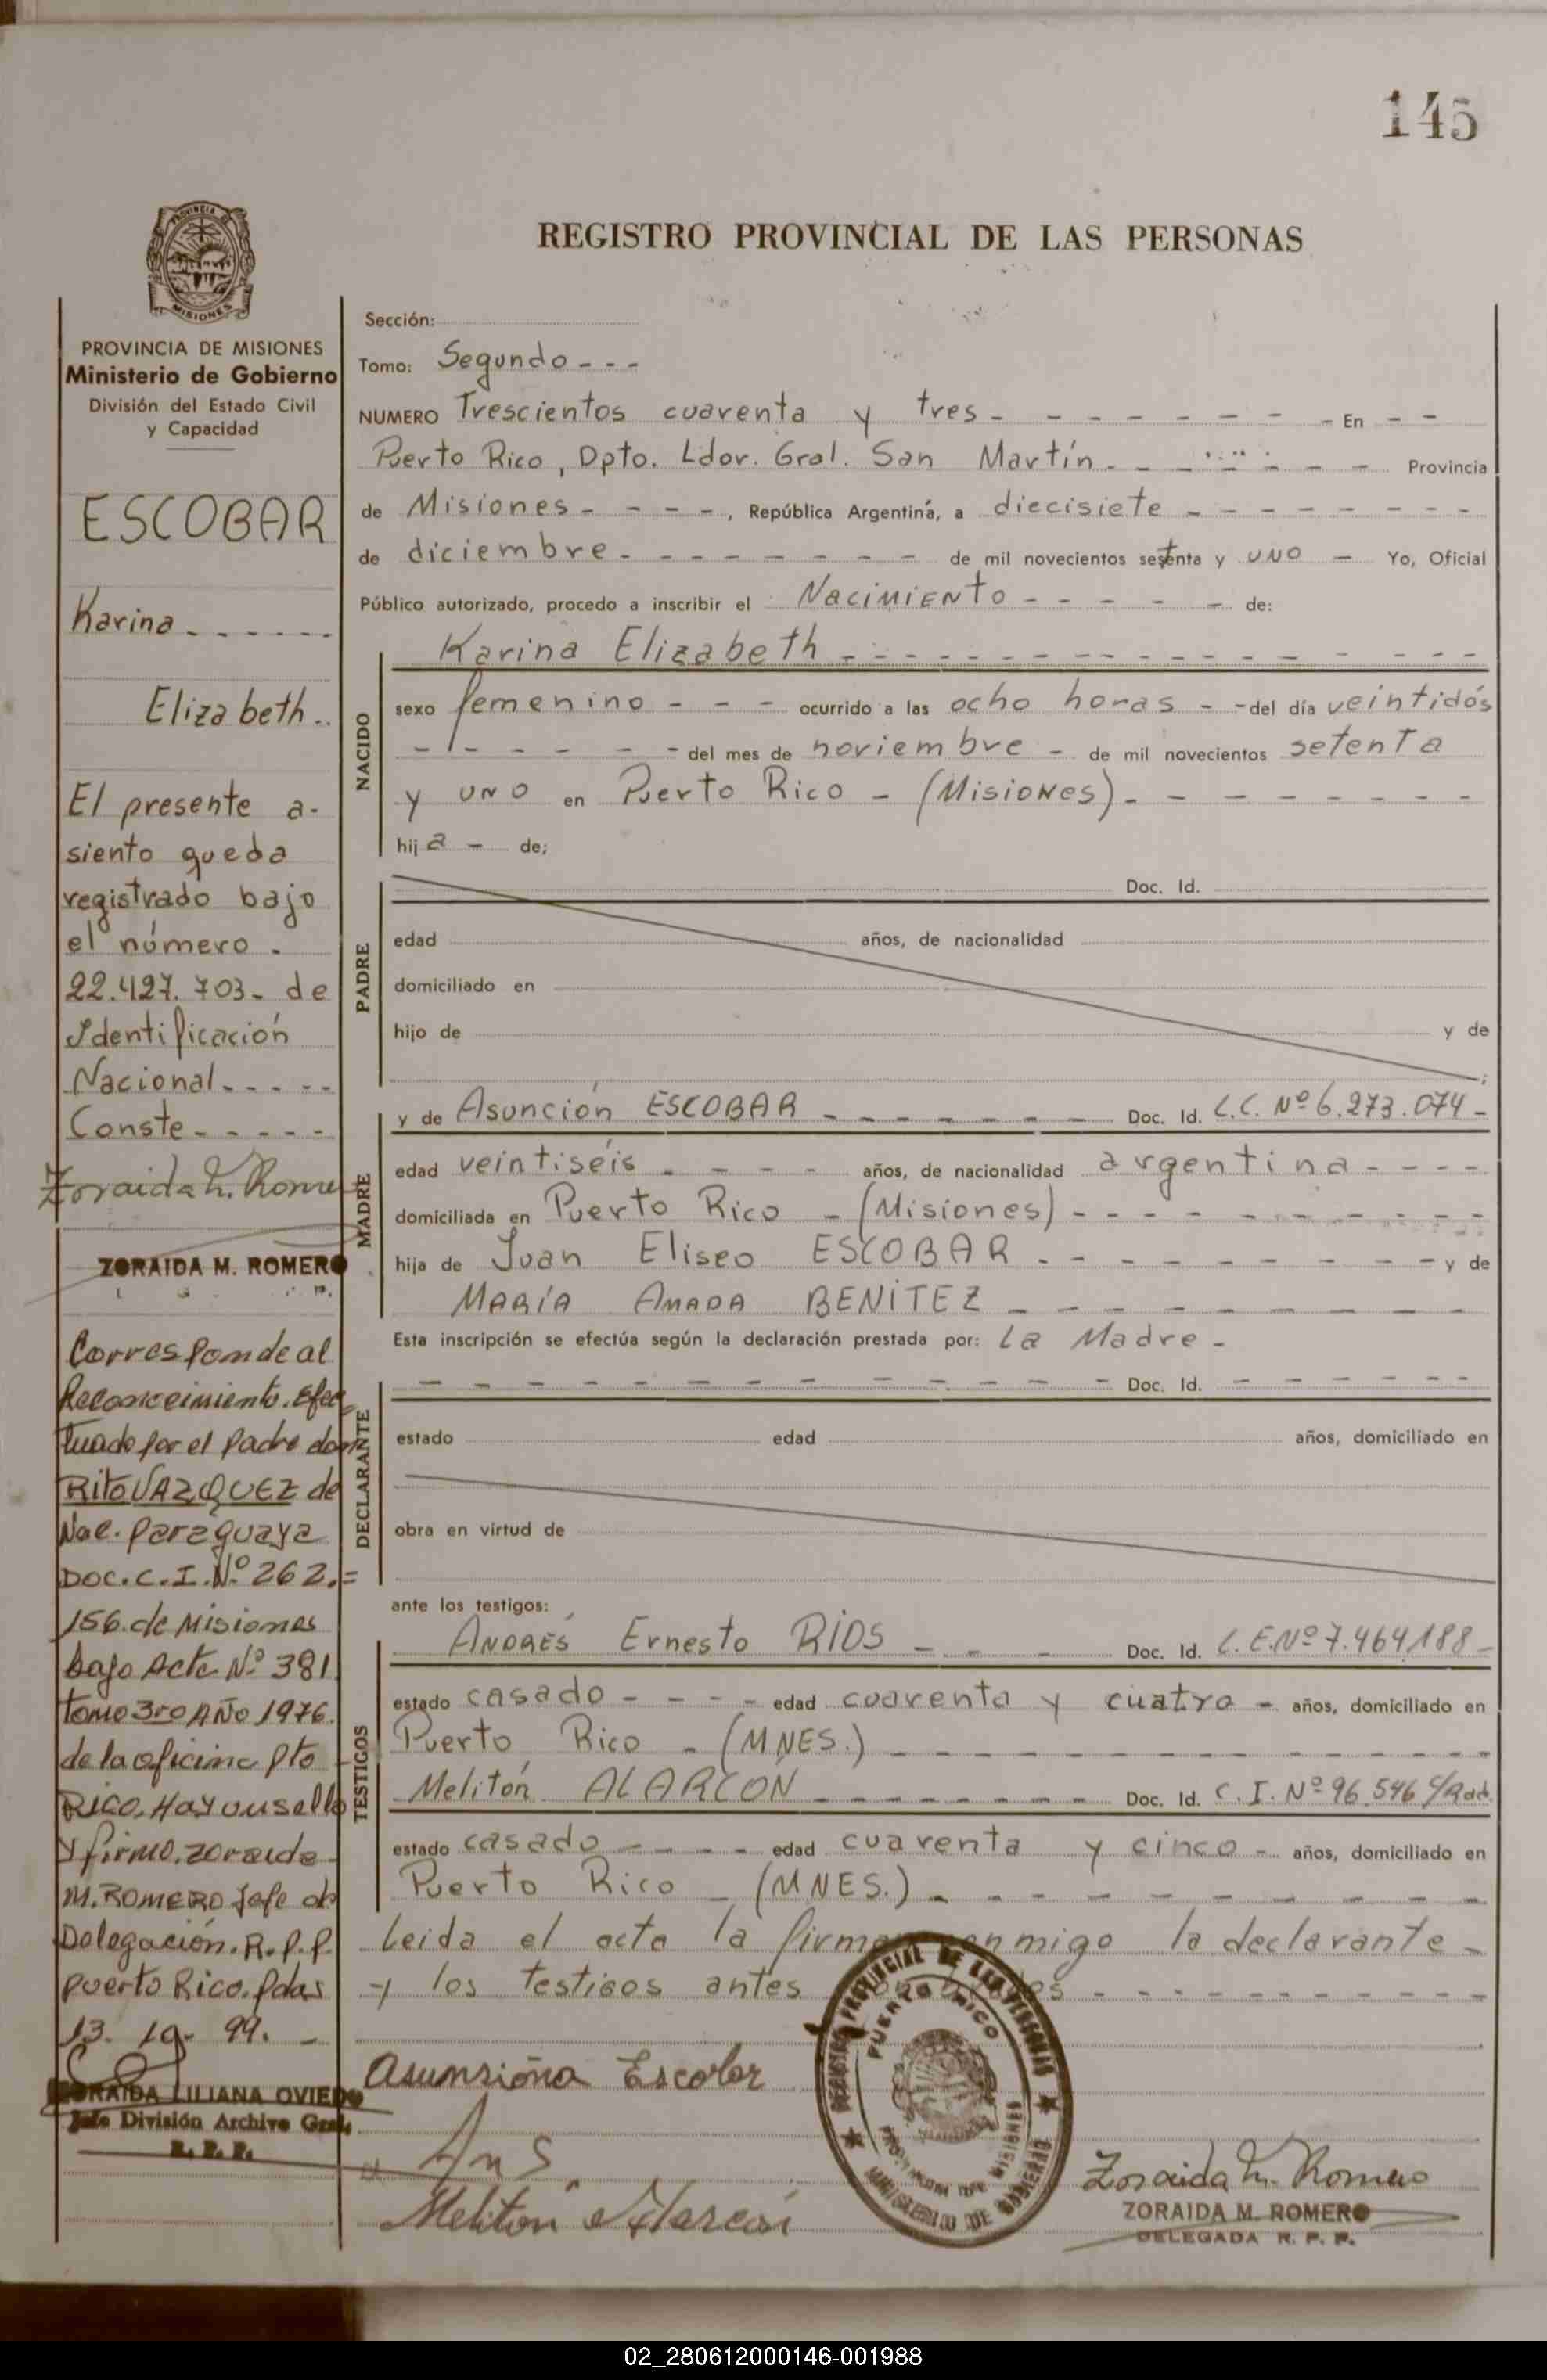 145
PROVINCIA DE
MISIONES
REGISTRO PROVINCIAL DE LAS PERSONAS
PROVINCIA DE MISIONES
Ministerio de Gobierno
División del Estado Civil
y Capacidad
ESCOBAR
Karina - - - - - -
Elizabeth - -
El presente a-
siento queda
registrado bajo
el número -
22.427.703- de
Identificación
Nacional - - - - -
Conste - - - - -
Zoraida M. Rome
ZORAIDA M. ROMERO
Corresponde al
Reconocimiento. Efec
tuado por el padre don
Rito VAZQUEZ de
Nac. paraguaya
Doc. C. I. Nº 262.=
156. de Misiones
bajo Acta Nº 381
tomo 3ro Año 1976.
de la oficina Pto
Rico. Hay un sello
y firma. zoraida
M. ROMERO Jefe de
Delegación. R.P.P.
puerto Rico. Pdas
13- 10- 99. -
ZORAIDA LILIANA OVIEDO
Jefe División Archivo Gral.
R. P. P.
Sección:
Tomo: Segundo - - -
NUMERO Trescientos cuarenta y tres - - - - - - - - En - -
Puerto Rico, Dpto. Ldor. Gral. San Martín - - - - - - - Provincia
de Misiones - - - - , República Argentina, a diecisiete - - - - - - - -
de diciembre - - - - - - - - de mil novecientos setenta y uno - Yo, Oficial
Público autorizado, procedo a inscribir el Nacimiento - - - - - de:
NACIDO
Karina Elizabeth - - - - - - - - - - - - - - - -
sexo femenino - - - ocurrido a las ocho horas - - del día veintidós
- - - - - - - del mes de noviembre - de mil novecientos setenta
y uno en Puerto Rico - (Misiones) - - - - - - - -
hija - de;
PADRE
Doc. Id.
edad años, de nacionalidad
domiciliado en
hijo de y de
;
MADRE
y de Asunción ESCOBAR - - - - - - - Doc. Id. L.C. Nº 6.273.074 -
edad veintiséis - - - - años, de nacionalidad argentina - - - -
domiciliada en Puerto Rico - (Misiones) - - - - - - - - - -
hija de Juan Eliseo ESCOBAR - - - - - - - - - y de
MARÍA AMADA BENÍTEZ - - - - - - - - - -
Esta inscripción se efectúa según la declaración prestada por: La Madre -
DECLARANTE
- - - - - - - - - - - - - - Doc. Id. - - - - - -
estado edad años, domiciliado en
obra en virtud de
ante los testigos:
TESTIGOS
ANDRÉS Ernesto RÍOS - - - - Doc. Id. L.E. Nº 7.464.188 -
estado casado - - - - edad cuarenta y cuatro - años, domiciliado en
Puerto Rico - (MNES.) - - - - - - - - - - - - - -
Melitón ALARCÓN - - - - - - - Doc. Id. C. I. Nº 96.546
estado casado - - - - edad cuarenta y cinco - años, domiciliado en
Puerto Rico - (MNES.) - - - - - - - - - - - -
Leída el acta la firman conmigo la declarante -
y los testigos antes - - - - - - - - - -
REGISTRO PROVINCIAL DE LAS PERSONAS
PUERTO RICO
PROVINCIA DE MISIONES
MINISTERIO DE GOBIERNO
Asunsiona Escobar
Melitón Alarcón
Zoraida M. Romero
ZORAIDA M. ROMERO
DELEGADA R. P. P.
02_280612000146-001988